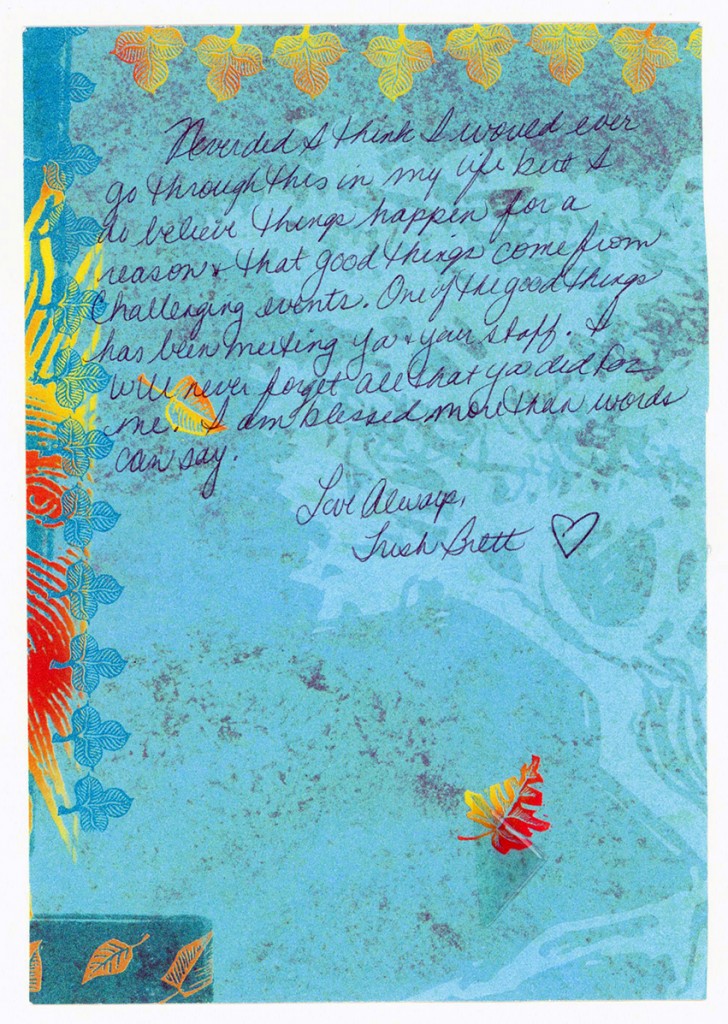 Never did I think I would ever
go through this in my life but I
do believe things happen for a
reason & that good things come from
challenging events. One of the good things
has been meeting ya & your staff. I
will never forget all that ya did for
me. I am blessed more than words
can say.
Love Always,
Trish Brett